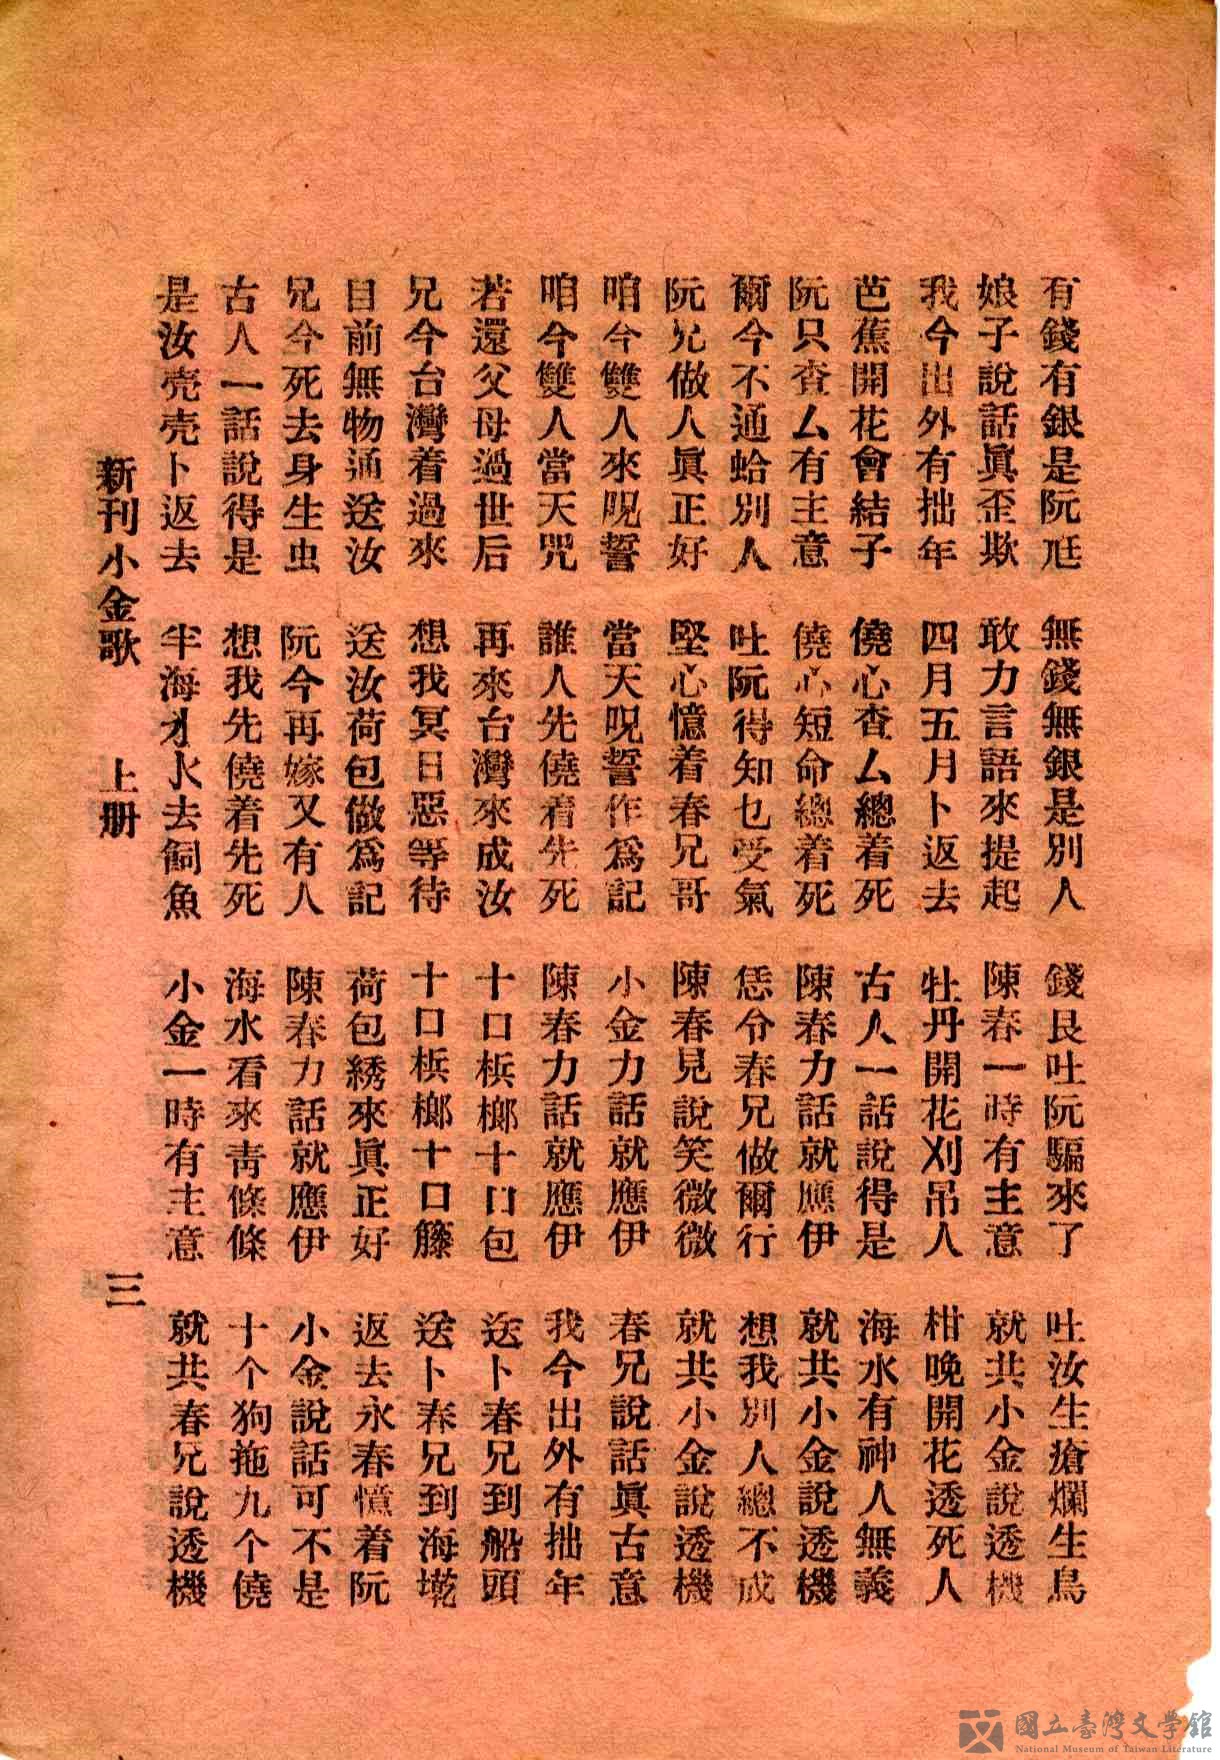 有錢有銀是阮尫 無錢無銀是別人 錢艮吐阮騙來了 吐汝生瘡爛生鳥
娘子說話眞歪欺 敢力言語來提起 陳春一時有主意 就共小金說透機
我今出外有拙年 四月五月卜返去 牡丹開花刈吊人 柑晚開花透死人
芭蕉開花會結子 僥心查厶總着死 古人一話說得是 海水有神人無義
阮只查厶有主意 僥心短命總着死 陳春力話就應伊 就共小金說透機
爾今不通蛤別人 吐阮得知乜受氣 恁今春兄做爾行 想我別人總不成
阮兄做人眞正好 堅心憶着春兄哥 陳春見說笑微微 就共小金說透機
咱今雙人來呪誓 當天呪誓作爲記 小金力話就應伊 春兄說話眞古意
咱今雙人當天咒 誰人先僥着先死 陳春力話就應伊 我今出外有拙年
若還父母過世后 再來台灣來成汝 十口梹榔十口包 送卜春兄到船頭
兄今台灣着過來 想我冥日惡等待 十口梹榔十口籐 送卜春兄到海墘
目前無物通送汝 送汝荷包做爲記 荷包綉來眞正好 返去永春憶着阮
兄今死去身生虫 阮今再嫁又有人 陳春力話就應伊 小金說話可不是
古人一話說得是 想我先僥着先死 海水看來靑條條 十个狗拖九个僥
是汝壳壳卜返去 半海才水去飼魚 小金一時有主意 就共春兄說透機
新刊小金歌 上册 三
國立臺灣文學館
National Museum of Taiwan Literature